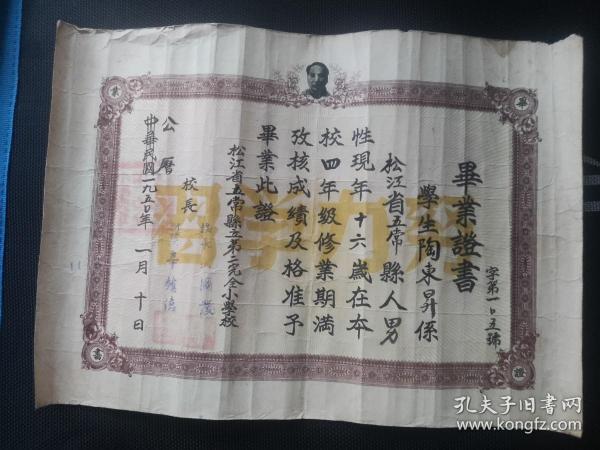 畢業證書
字第一〇五號
學生陶東昇係
松江省五常縣人男
性現年十六歲在本
校四年級修業期滿
攷核成績及格准予
畢業此證
松江省五常縣立第二完全小學校
校長
公曆
中華民國一九五〇年 一月十日
畢
業
證
書
孔夫子旧書网
www.kongfz.com